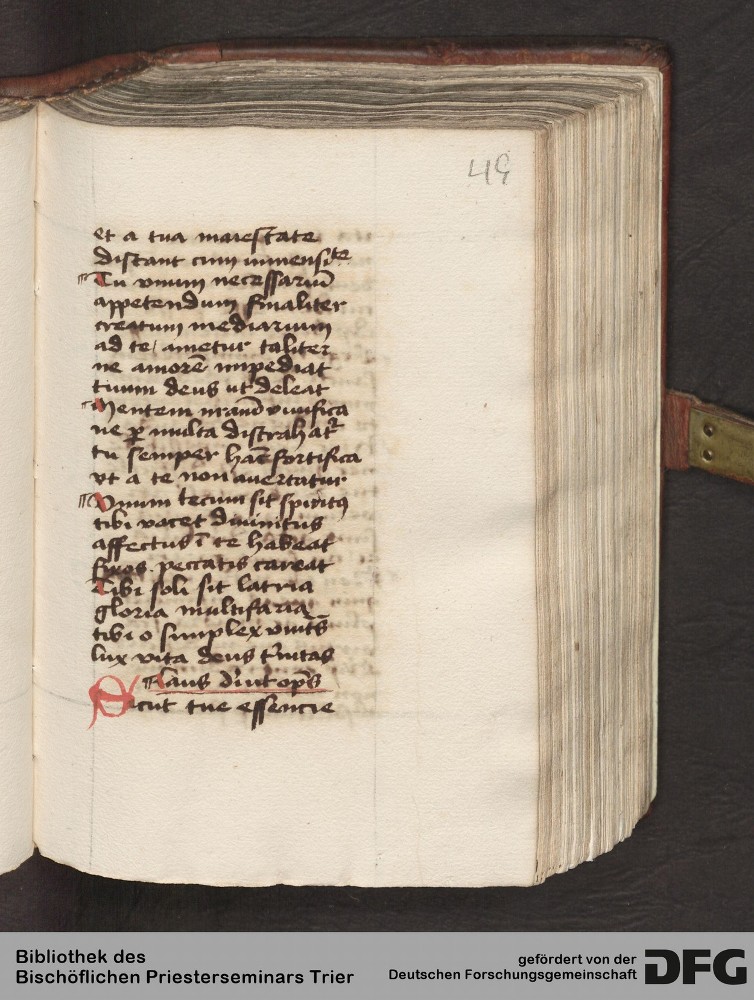 49
et a tua maiestate
distant cum inmensite
Tu vnum necessariū
appetendum finaliter
creatum mediarium
ad te / ametur taliter
ne amorē impediat
tuum deus ut deleat
Mentem nrām viuifica
ne ꝑ multa distrahat᷑
tu semper hāc fortifica
vt a te non auertatur
Vnum tecum sit spiritꝰ
tibi vacet diuinitus
affectus ī te habeat
fixos peccatis careat
Tibi soli sit latria
gloria multifaria
tibi o simplex vnitas
lux vita deus t'nitas
Laus
Sicut tue essencie
Bibliothek des
Bischöflichen Priesterseminars Trier
gefördert von der
Deutschen Forschungsgemeinschaft
DFG